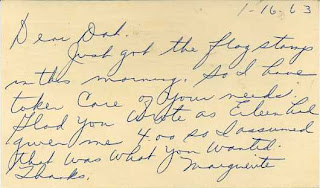 1-16-63
Dear Dad.
Just got the flag stamps
in this morning. So I have
taken care of your needs.
Glad you wrote as Eileen had
given me 4.00 so I assumed
that was what you wanted.
Thanks. Marguerite